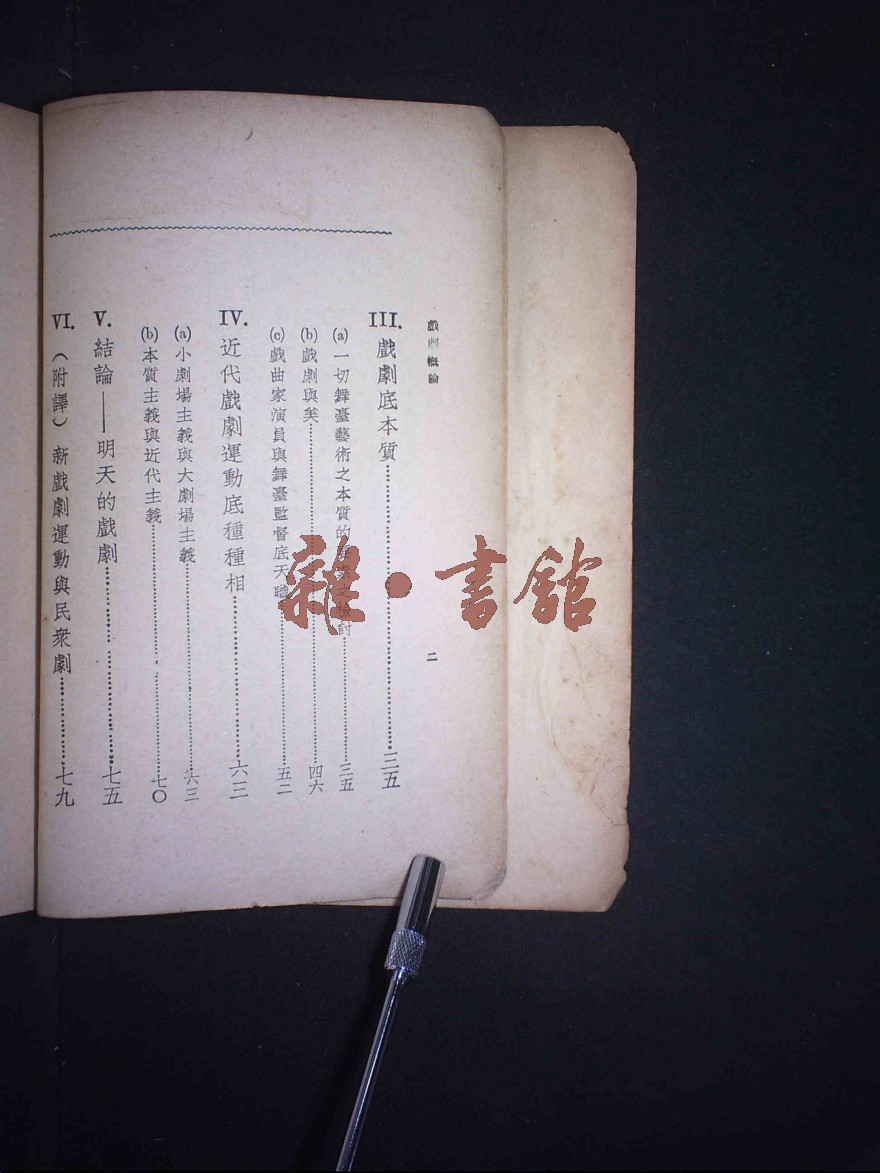 戲劇概論
二
III. 戲劇底本質……三五
(a) 一切舞臺藝術之本質的要素之檢討……三五
(b) 戲劇與美……四六
(c) 戲曲家演員與舞臺監督底天職……五二
IV. 近代戲劇運動底種種相……六三
(a) 小劇場主義與大劇場主義……六三
(b) 本質主義與近代主義……七〇
V. 結論——明天的戲劇……七五
VI. (附譯) 新戲劇運動與民衆劇……七九
雜·書館